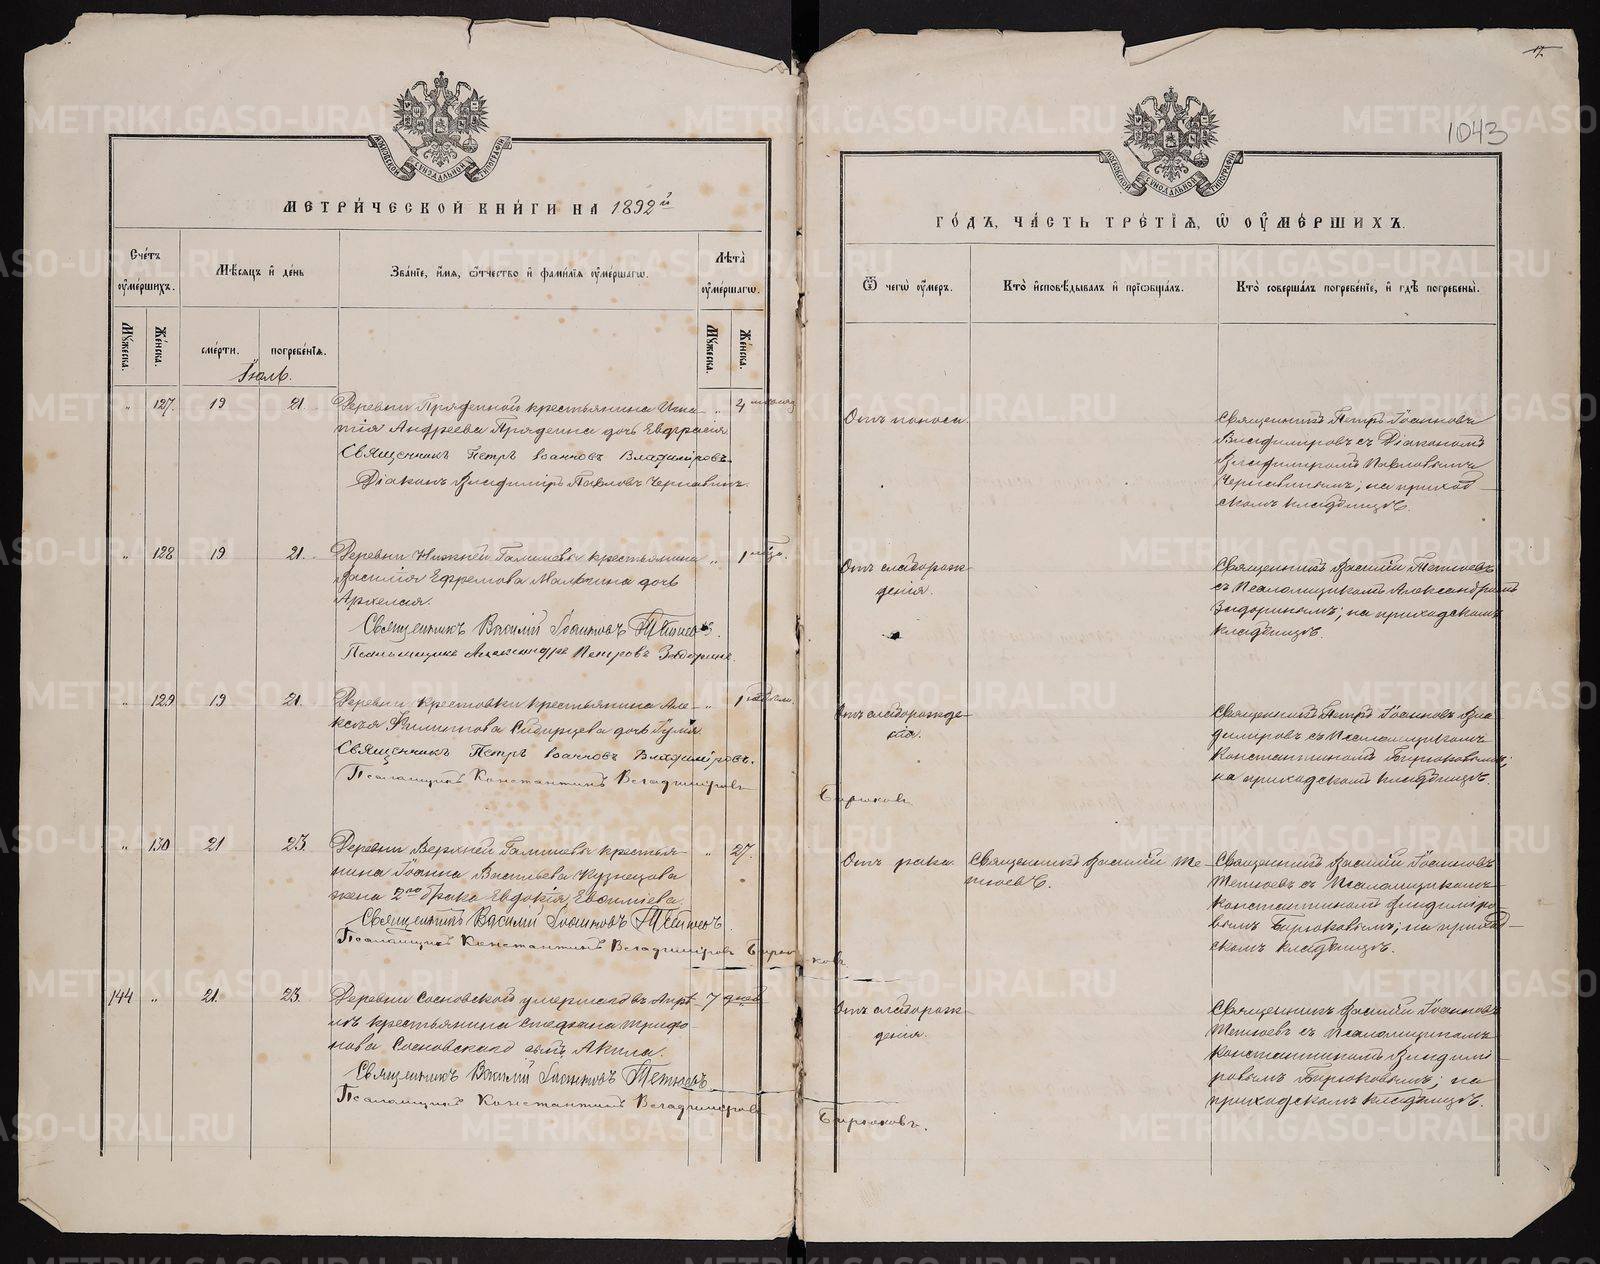 МЕТРИ́ЧЕСКОЙ КНИ́ГИ НА 1892й
Сче́тъ ѹ҆ме́ршихъ.
Мѣсяцъ и҆ де́нь
Зва́нїе, и҆́мя, ѻ҆́тчество и҆ фами́лїя ѹ҆ме́ршагѡ.
Лѣта̀ ѹ҆ме́ршагѡ.
Мꙋ́жеска.
Же́нска.
сме́рти.
погребе́нїя.
Мꙋ́жеска.
Же́нска.
Іюль.
„ 127. 19 21. Деревни Пряденной крестьянина Игна- „ 4 месяц
тія Андреева Прядеина дочь Евфрасія
Священникъ Петръ Іоанновъ Владиміровъ.
Діаконъ Владиміръ Павловъ Чернавинъ.
„ 128 19 21. Деревни Нижней Галишевы крестьянина „ 1
Василія Ефремова Малькина дочь
Архелая.
Священникъ Василій Іоанновъ Тетюевъ.
Псаломщикъ Александръ Петровъ Задоринъ.
„ 129 19 21. Деревни Крестовки крестьянина Але- „ 1
ксѣя Филиппова Сибирцева дочь Гулія
Священникъ Петръ Іоанновъ Владиміровъ.
Псаломщикъ Константинъ Владиміровъ
„ 130 21 23. Деревни Верхней Галишевы крестья- „ 27.
нина Іоанна Васильева Кузнецова
жена 2го брака Евдокія Евсиміева
Священникъ Василій Іоанновъ Тетюевъ.
Псаломщикъ Константинъ Владиміровъ Бирю
144 „ 21. 23. Деревни Сосновской умершаго въ Апрѣ- 7 дней
лѣ крестьянина Стефана Трифо-
нова Сосновскаго сынъ Акила.
Священникъ Василій Іоанновъ Тетюевъ
Псаломщикъ Константинъ Владиміровъ
17.
1043
ГО́ДЪ, ЧА́СТЬ ТРЕ́ТЇѦ, Ѡ҆ ОУ҆МЕ́РШИХЪ.
Ѿ чегѡ̀ ѹ҆́меръ.
Кто̀ и҆сповѣ́дывалъ и҆ прїѡбща́лъ.
Кто̀ соверша́лъ погребе́нїе, и҆ гдѣ̀ погребены̀.
Отъ поноса.
Священникъ Петръ Іоанновъ
Владиміровъ съ Діакономъ
Владиміромъ Павловымъ
Чернавинымъ; на приход
скомъ кладбищѣ.
Отъ слаборож-
денія.
Священникъ Василій Тетюевъ
съ Псаломщикомъ Александромъ
Задоринымъ; на приходскомъ
кладбищѣ.
Отъ слаборожде-
нія.
Священникъ Петръ Іоанновъ Вла
диміровъ съ Псаломщикомъ
Константиномъ Бирюковымъ;
на приходскомъ кладбищѣ.
Бирюковъ
Отъ рака
Священникъ Василій Те-
тюевъ.
Священникъ Василій Іоанновъ
Тетюевъ съ Псаломщикомъ
Константиномъ Владиміро-
вымъ Бирюковымъ; на приход-
скомъ кладбищѣ.
ковъ
Отъ слаборож-
денія.
Священникъ Василій Іоанновъ
Тетюевъ съ Псаломщикомъ
Константиномъ Владимі-
ровымъ Бирюковымъ; на
приходскомъ кладбищѣ.
Бирюковъ.
METRIKI.GASO-URAL.RU